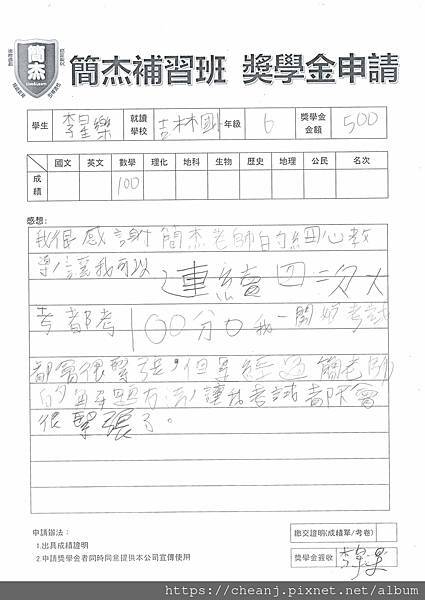 簡杰
簡杰補習班 獎學金申請
學生 李星樂 就讀學校 吉林國 年級 6 獎學金金額 500
國文 英文 數學 理化 地科 生物 歷史 地理 公民 名次
成績 100
感想:
我很感謝簡杰老師的細心教
導,讓我可以連續四次大
考都考100分。我一開始考試
都會很緊張,但是經過簡老師
的解題方法,讓我考試都不會
很緊張了。
申請辦法:
1.出具成績證明
2.申請獎學金者同時同意提供本公司宣傳使用
繳交證明(成績單/考卷)
獎學金簽收
https://cheanj.pixnet.net/album